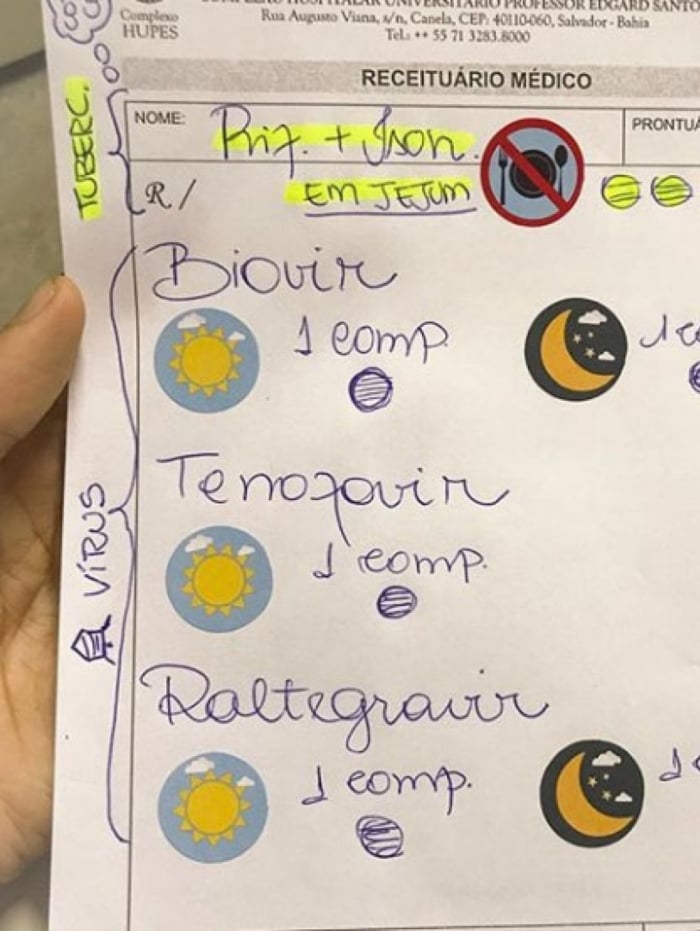 Complexo
HUPES
UNIVERSITÁRIO PROFESSOR EDGARD SANTO
Rua Augusto Viana, s/n, Canela, CEP: 40110-060, Salvador - Bahia
Tel.: ++ 55 71 3283.8000
RECEITUÁRIO MÉDICO
TUBERC.
NOME:
Rif. + Ison.
PRONTUÁ
R/
EM JEJUM
Biovir
1 comp.
1 co
Tenofovir
1 comp.
VÍRUS
Raltegravir
1 comp.
1 c